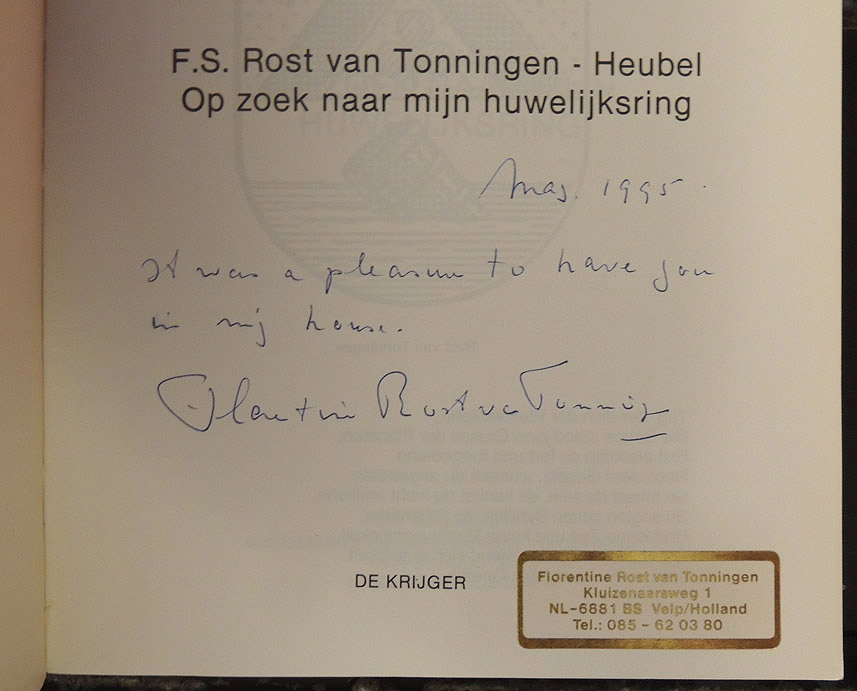 F.S. Rost van Tonningen - Heubel
Op zoek naar mijn huwelijksring
May. 1995.
It was a pleasure to have you
in my house.
Florentine Rost van Tonningen
DE KRIJGER
Florentine Rost van Tonningen
Kluizenaarsweg 1
NL-6881 BS Velp/Holland
Tel.: 085 - 62 03 80